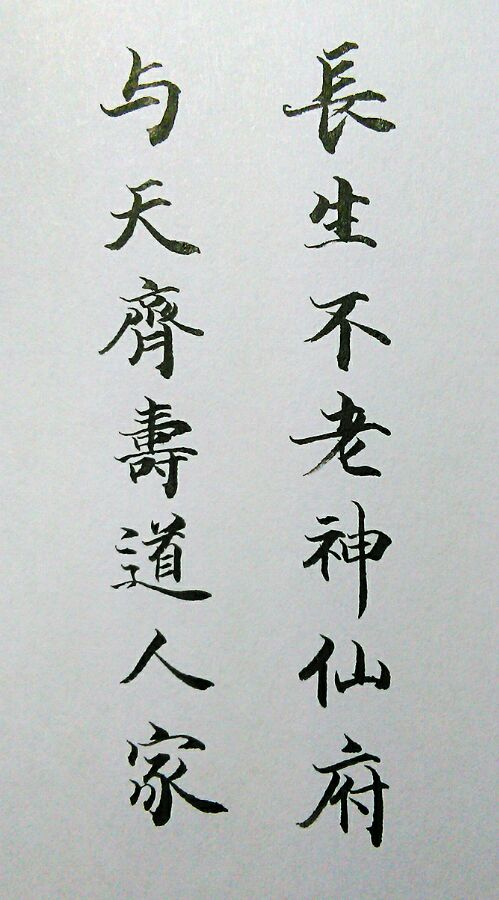 長生不老神仙府
与天齊壽道人家